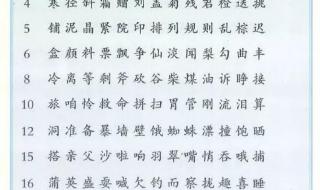 4 寒径斜霜赠刘盖菊残君橙送挑
5 铺泥晶紧院印排列规则乱棕迟
6 盒颜料票飘争仙淡闻梨勾曲丰
8 冷离等刺斧砍谷柴煤油诉睁接
10 旅咱怜救命拼扫胃管刚流泪算
12 洞准备暴墙壁饿蜘蛛漂撞饱晒
15 搭亲父沙啦响羽翠嘴悄吞哦捕
16 蒲英盛耍喊欠钓而察拢趣喜睡